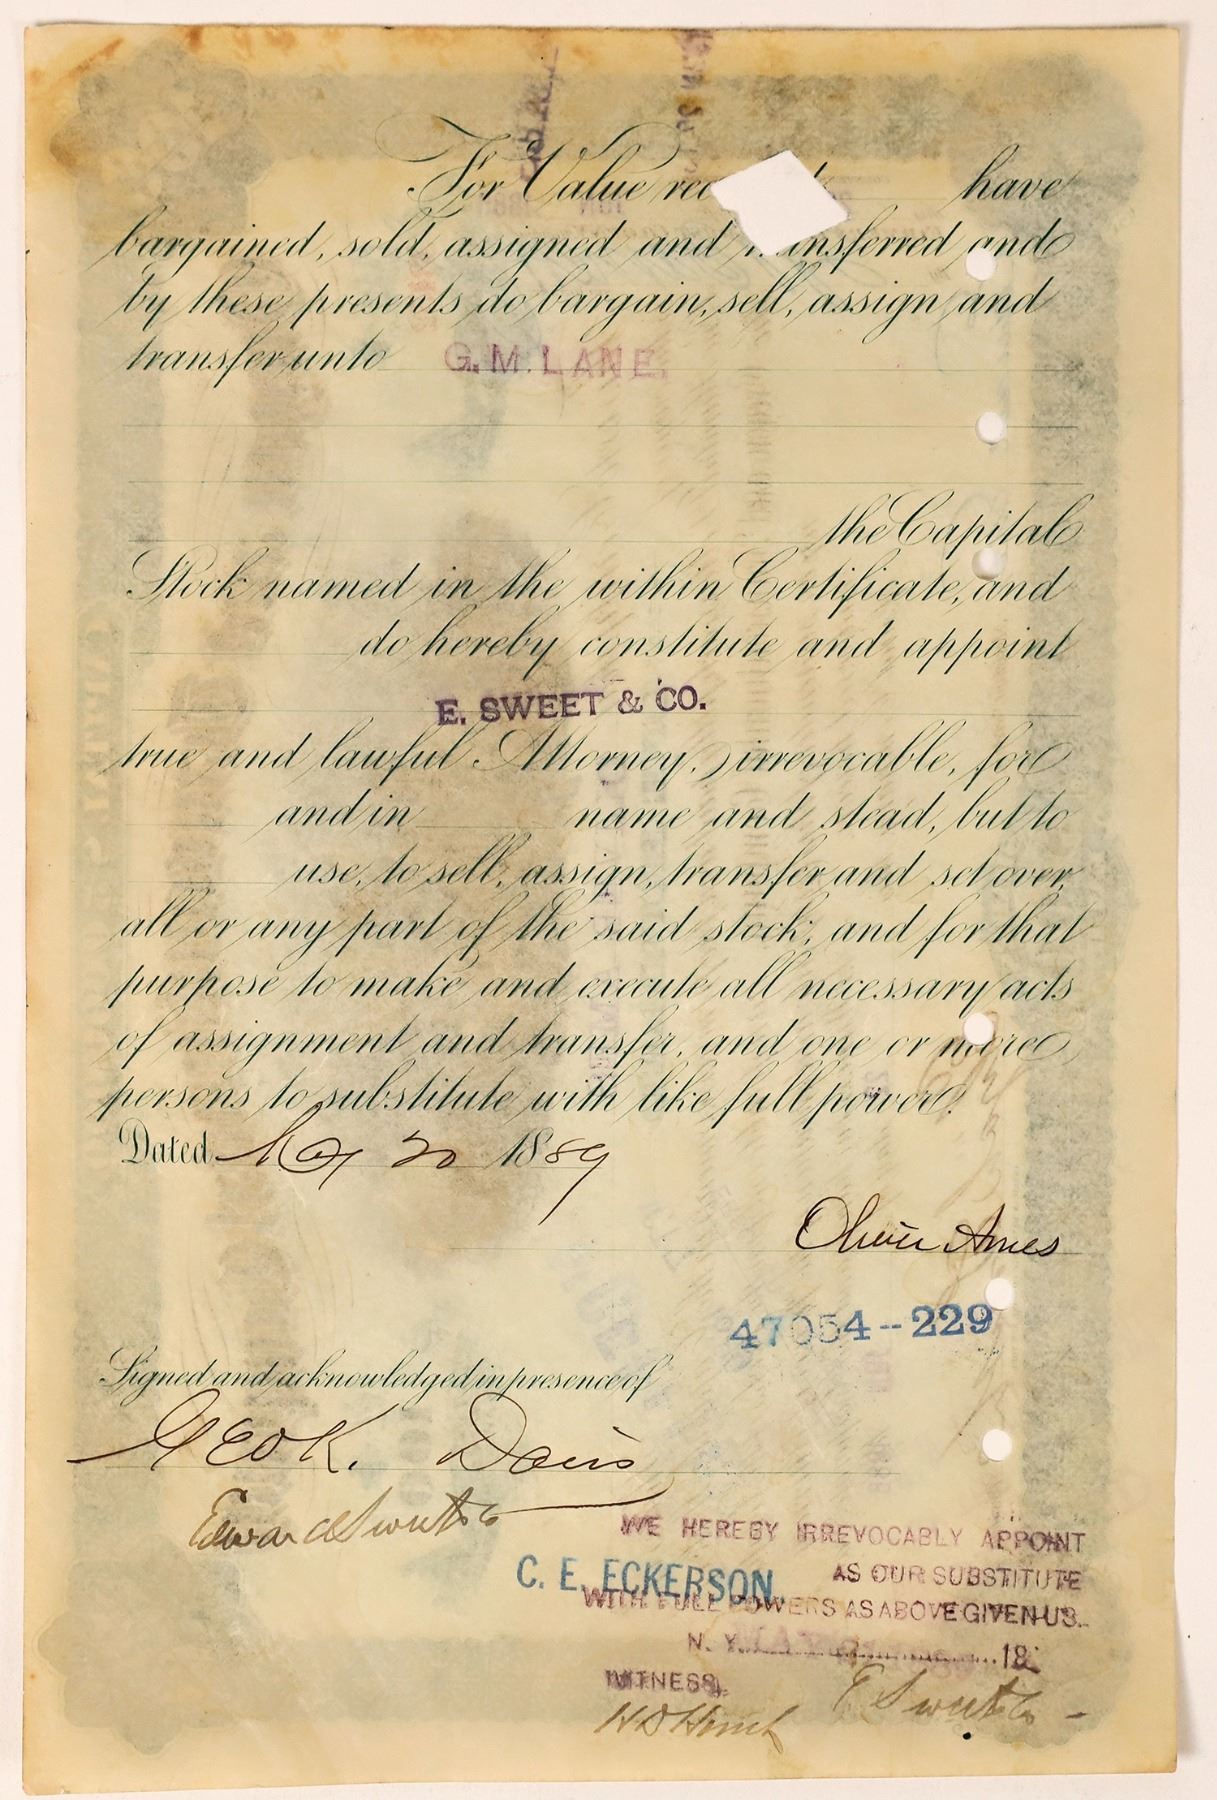 For Value rec have
bargained, sold, assigned and ansferred and
by these presents do bargain, sell, assign and
transfer unto G. M. LANE.
the Capital
Stock named in the within Certificate, and
do hereby constitute and appoint
E. SWEET & CO.
true and lawful Attorney, irrevocable, for
and in name and stead, but to
use, to sell, assign, transfer and set over,
all or any part of the said stock; and for that
purpose to make and execute all necessary acts
of assignment and transfer, and one or more
persons to substitute with like full power.
Dated May 20 1889
Oliver Ames
47054--229
Signed and acknowledged in presence of
Geo K. Davis
Edward Sweet & Co
WE HEREBY IRREVOCABLY APPOINT
C. E. ECKERSON. AS OUR SUBSTITUTE
WITH FULL POWERS AS ABOVE GIVEN US.
N. Y. MAY 18
WITNESS,
E Sweet & Co